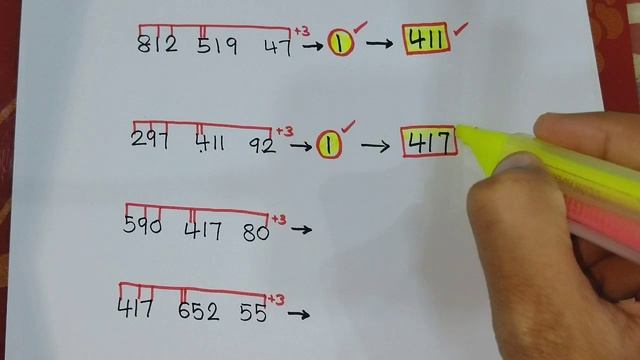 812 519 47 +3 → 1 ✓ → 411 ✓
297 411 92 +3 → 1 ✓ → 417
590 417 80 +3 →
417 652 55 +3 →